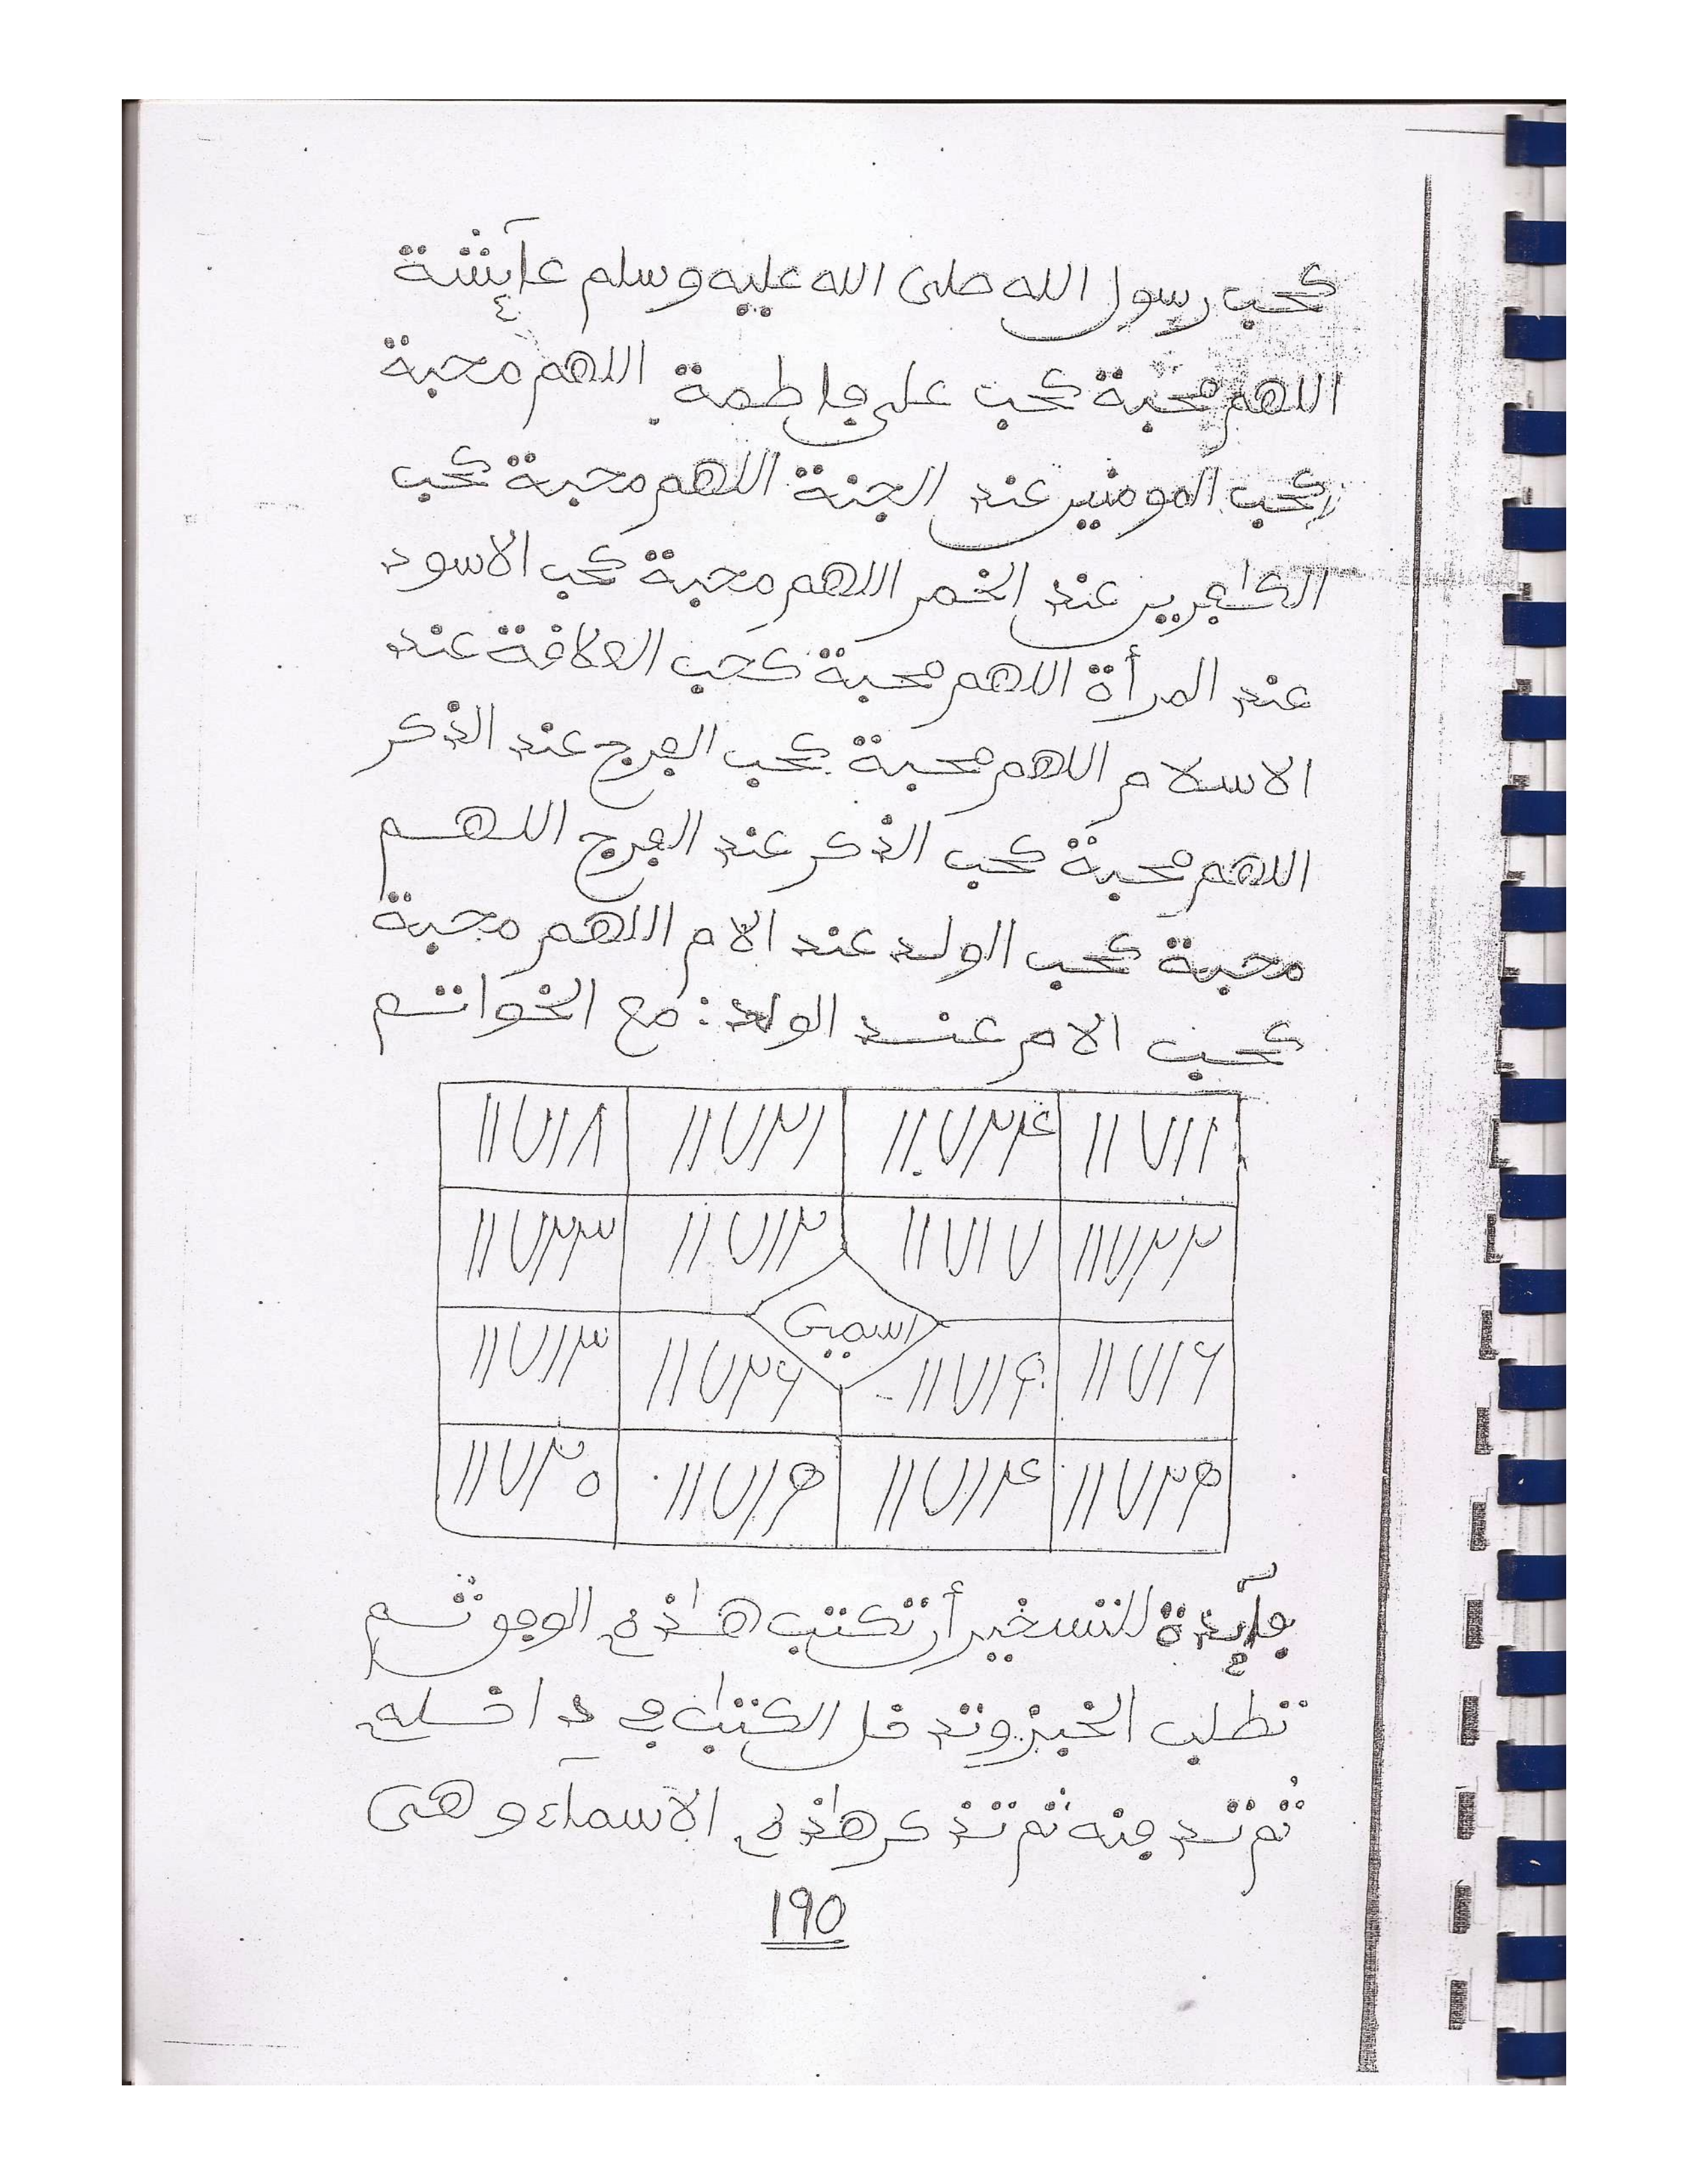 كحب رسول الله صلى الله عليه وسلم عآئشة
اللهم محبة كحب على فاطمة اللهم محبة
كحب المومنين عند الجنة اللهم محبة كحب
الكافرين عند الخمر اللهم محبة كحب الاسود
عند المرأة اللهم محبة كحب العلافة عند
الاسلام اللهم محبة كحب الفرج عند الذكر
اللهم محبة كحب الذكر عند الفرج اللهم
محبة كحب الولد عند الام اللهم محبة
كحب الام عند الولد : مع الخواتم
١١٧١٨ ١١٧٢١ ١١٧٢٤ ١١٧١١
١١٧٢٣ ١١٧١٢ ١١٧١٧ ١١٧٢٢
اسميى
١١٧١٣ ١١٧٢٦ ١١٧١٩ ١١٧١٦
١١٧٢٠ ١١٧١٥ ١١٧١٤ ١١٧٢٥
فآئدة للتسخير أن تكتب هاذه الوفو ثم
تطلب الخبز وتدخل الكتاب فى داخله
ثم تدفنه ثم تذكر هاذه الاسمآء وهى
190